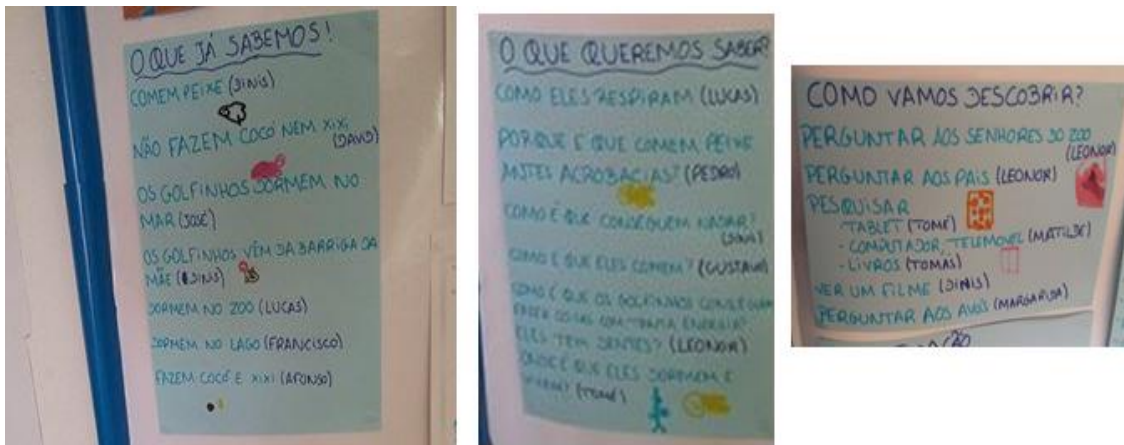 O QUE JÁ SABEMOS!
COMEM PEIXE (DINIS)
NÃO FAZEM COCÓ NEM XIXI
(DAVID)
OS GOLFINHOS DORMEM NO
MAR (JOSÉ)
OS GOLFINHOS VÊM DA BARRIGA DA
MÃE (DINIS)
DORMEM NO ZOO (LUCAS)
DORMEM NO LAGO (FRANCISCO)
FAZEM COCÓ E XIXI (AFONSO)
O QUE QUEREMOS SABER?
COMO ELES RESPIRAM (LUCAS)
PORQUE É QUE COMEM PEIXE
ANTES ACROBACIAS? (PEDRO)
COMO É QUE CONSEGUEM NADAR?
(DINIS)
COMO É QUE ELES COMEM? (GUSTAVO)
COMO É QUE OS GOLFINHOS CONSEGUEM
FAZER COISAS COM TANTA ENERGIA?
ELES TEM DENTES? (LEONOR)
ONDE É QUE ELES DORMEM E
(TOMÉ)
COMO VAMOS DESCOBRIR?
PERGUNTAR AOS SENHORES DO ZOO
(LEONOR)
PERGUNTAR AOS PAIS (LEONOR)
PESQUISAR
- TABLET (TOMÉ)
- COMPUTADOR, TELEMOVEL (MATILDE)
- LIVROS (TOMÁS)
VER UM FILME (DINIS)
PERGUNTAR AOS AVÓS (MARGARIDA)